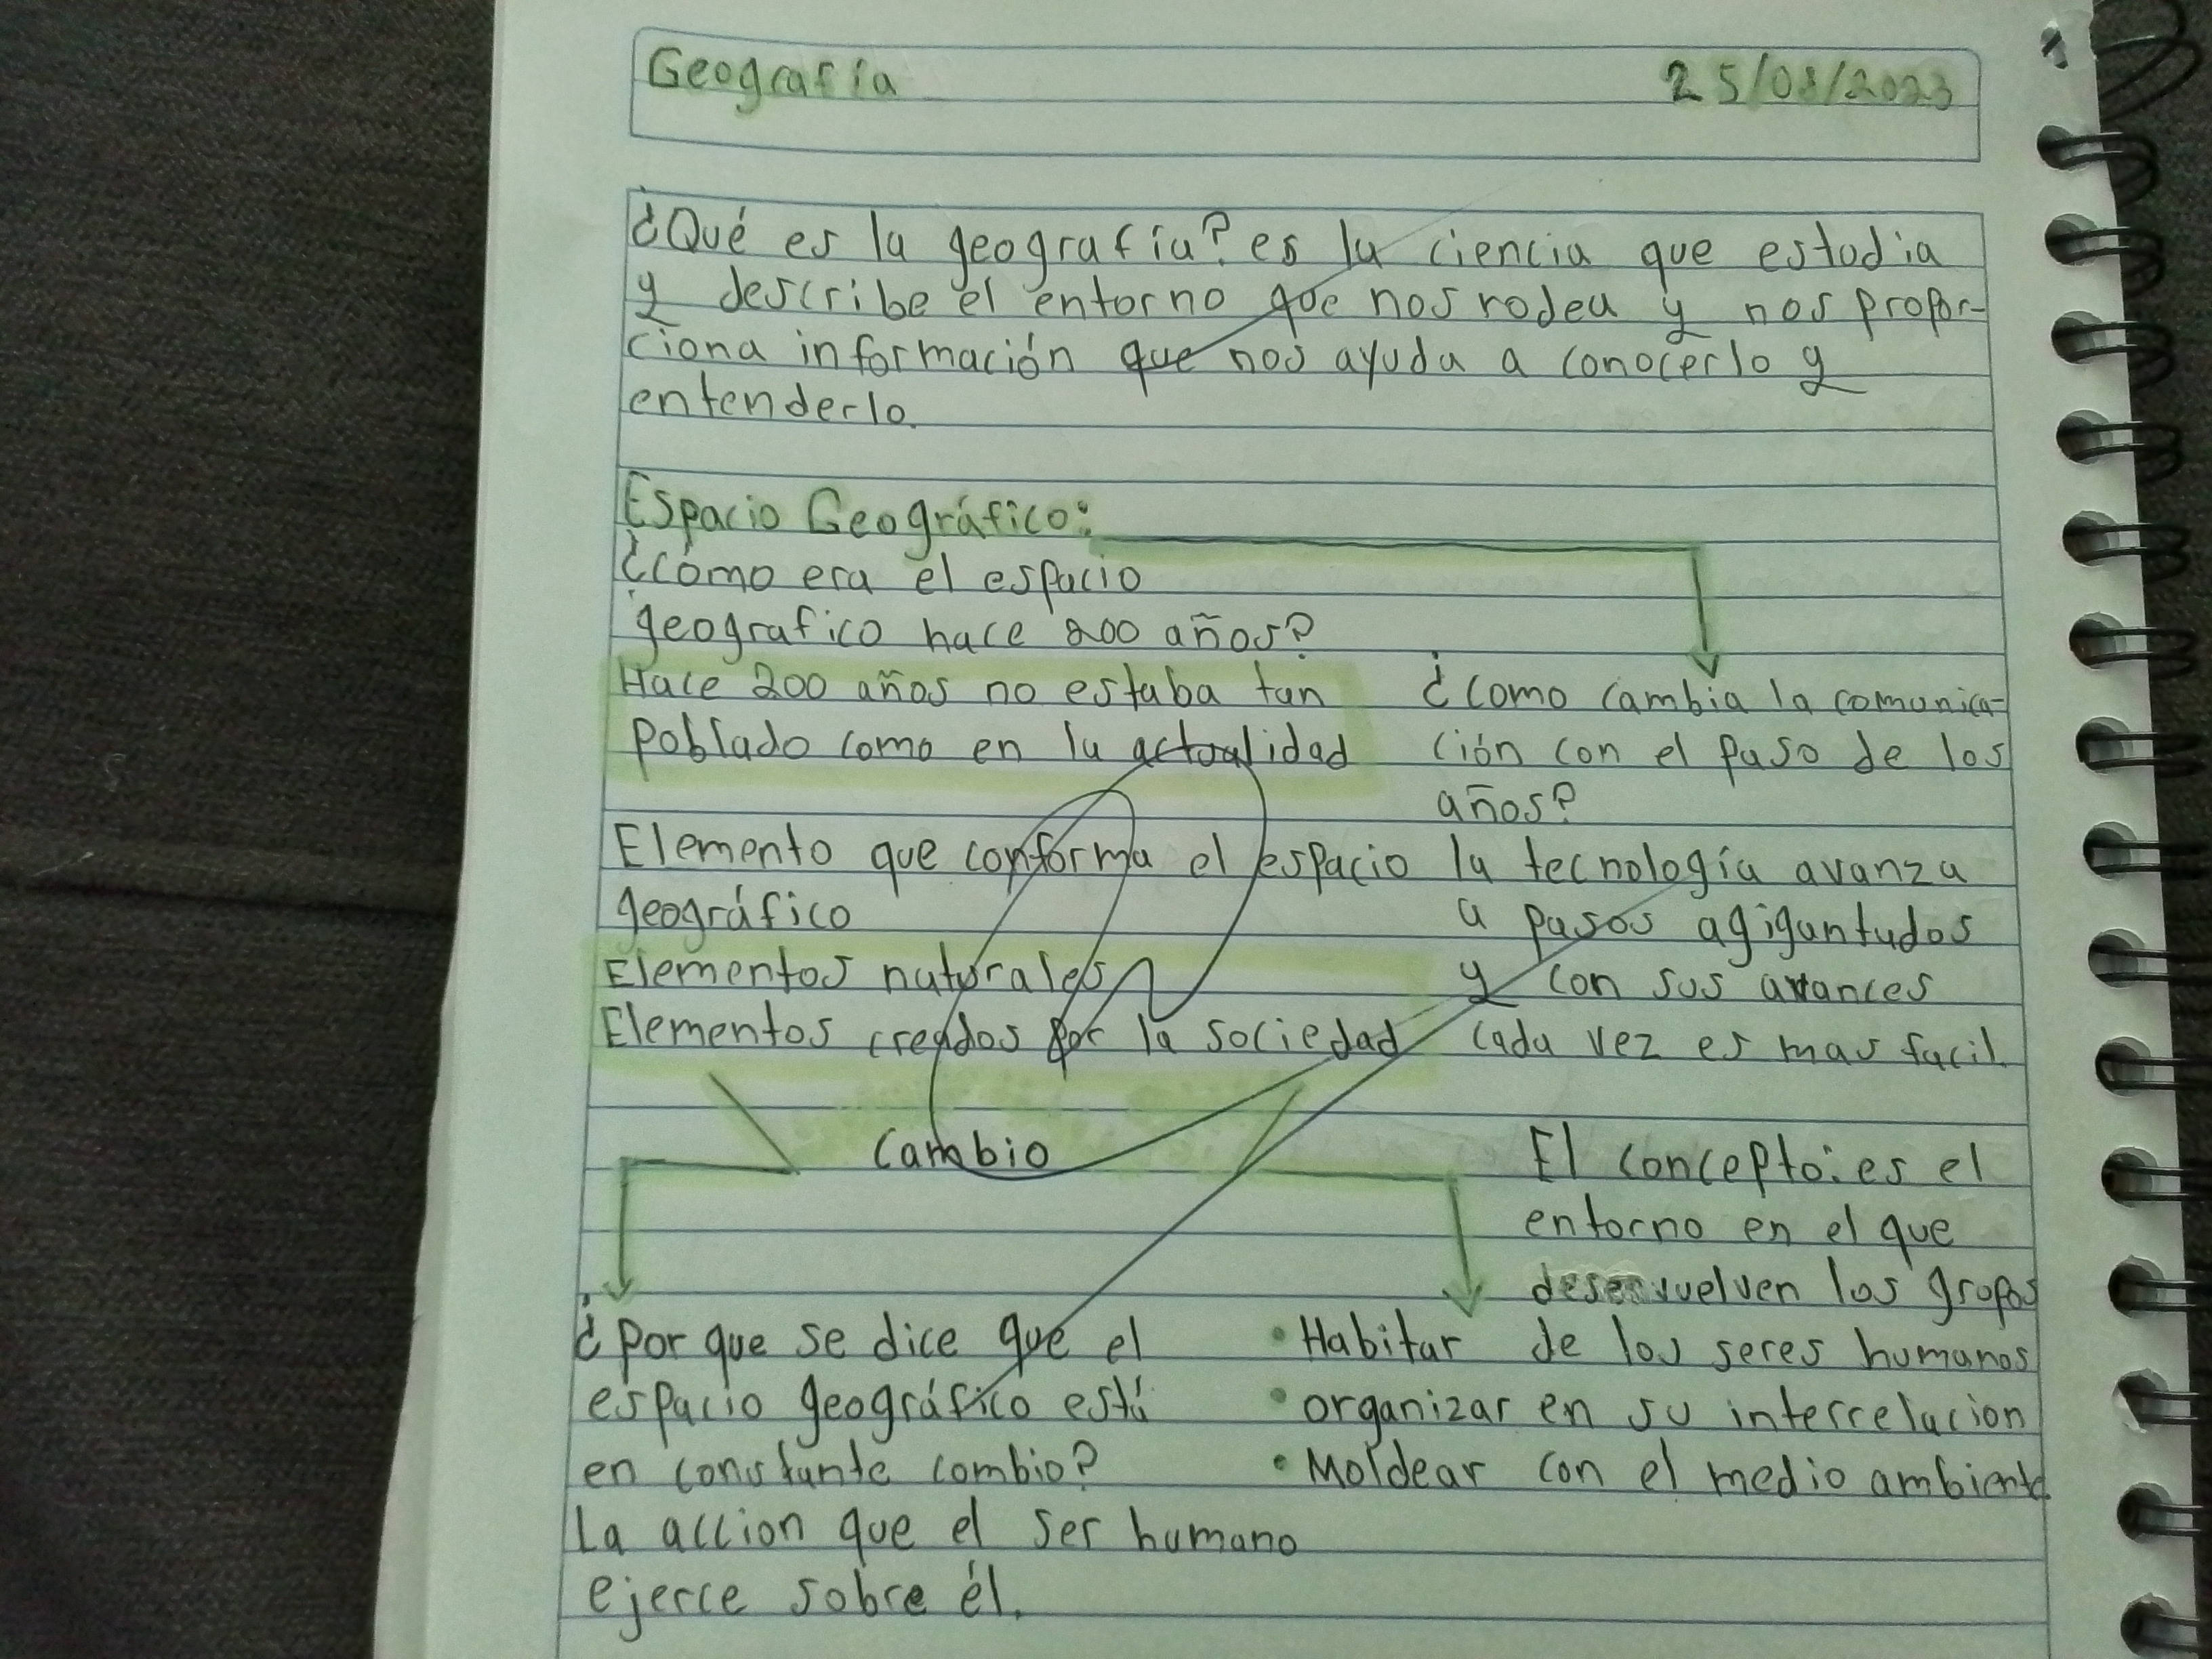 1
Geografía 25/08/2023
¿Qué es la geografía? es la ciencia que estudia
y describe el entorno que nos rodea y nos propor-
ciona información que nos ayuda a conocerlo y
entenderlo.
Espacio Geográfico:
¿Cómo era el espacio
geografico hace 200 años?
Hace 200 años no estaba tan
poblado como en la actualidad
¿Como cambia la comunica-
ción con el paso de los
años?
la tecnología avanza
a pasos agigantados
y con sus avances
cada vez es mas facil.
Elemento que conforma el espacio
geográfico
Elementos naturales
Elementos creados por la sociedad
Cambio
¿Por que se dice que el
espacio geográfico está
en constante cambio?
La accion que el ser humano
ejerce sobre él.
• Habitar
• organizar
• Moldear
El concepto: es el
entorno en el que
desenvuelven los grupos
de los seres humanos
en su interrelacion
con el medio ambiente